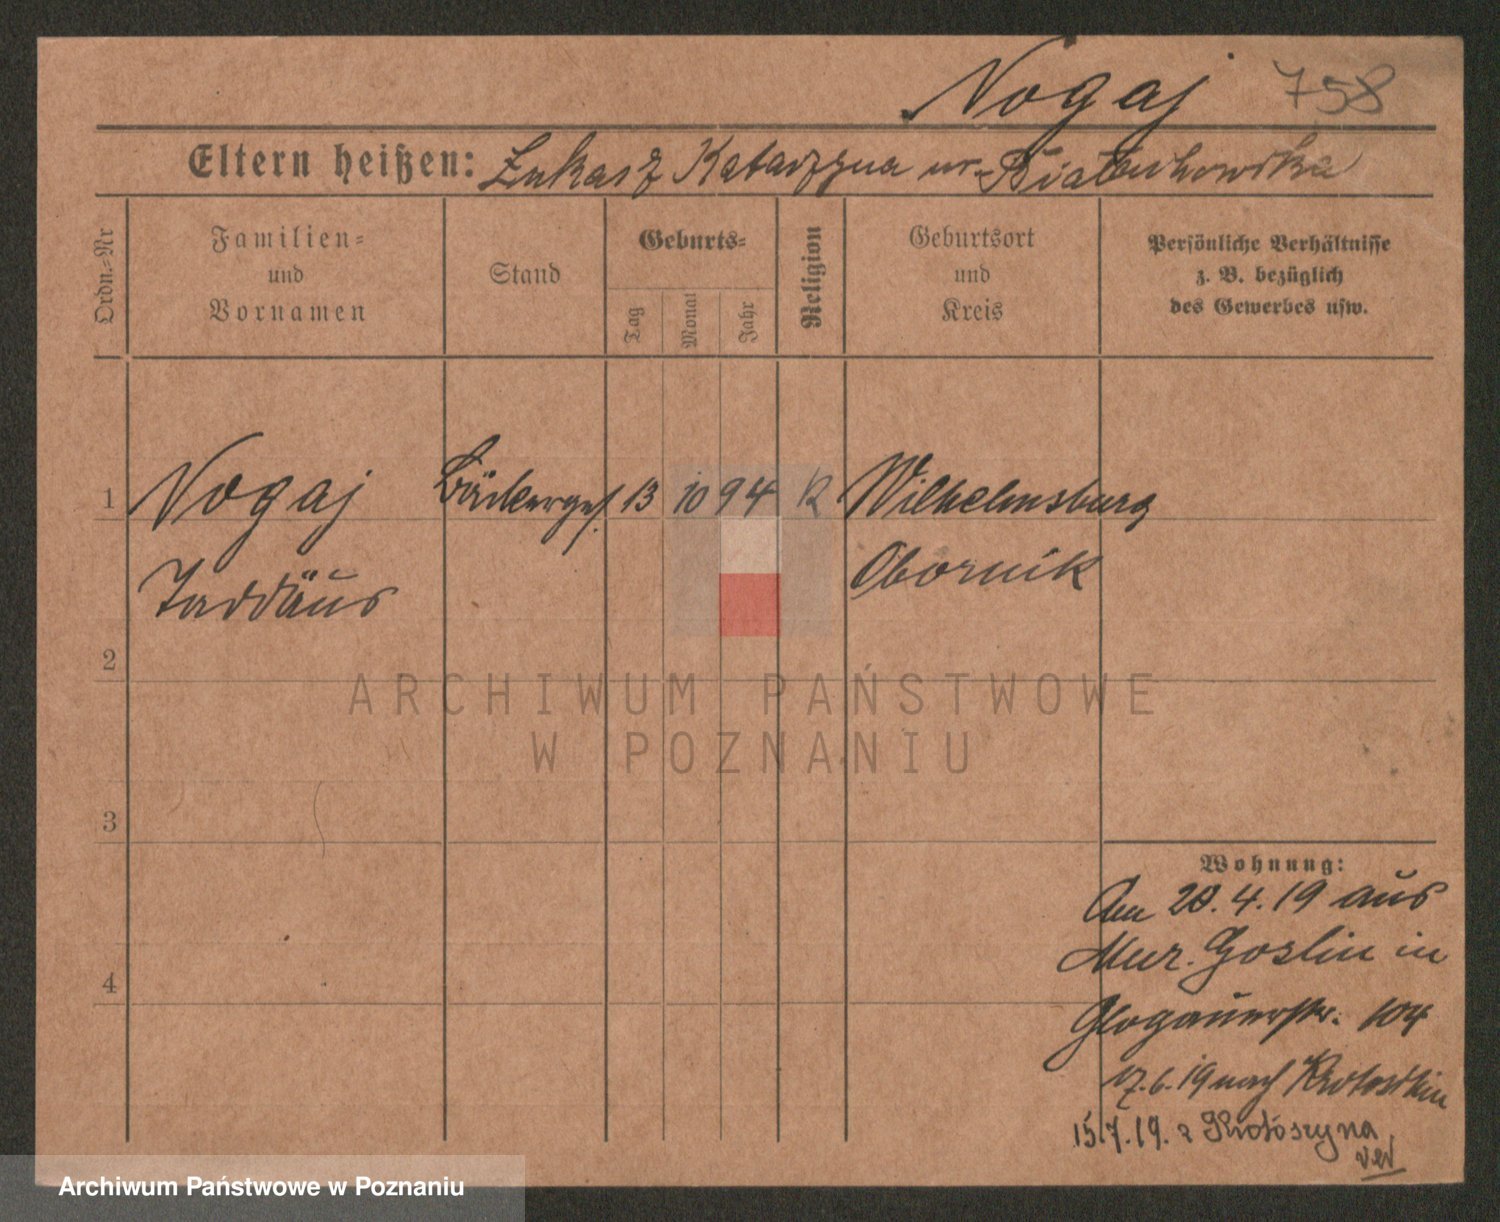 Nogaj 758
Eltern heißen: Łukasz Katarzyna ur.
Ordn.-Nr
Familien-
und
Vornamen
Stand
Geburts-
Tag
Monat
Jahr
Religion
Geburtsort
und
Kreis
Persönliche Verhältnisse
z. B. bezüglich
des Gewerbes usw.
1 Nogaj Bäckerges. 13 10 94 K Wilhelmsburg
Taddäus Obornik
2
ARCHIWUM PAŃSTWOWE
W POZNANIU
3
Wohnung:
Am 28.4.19 aus
Mur. Goslin in
4
Glogauerstr. 104
17.6.19 nach Krotoschin
15.7.19. z Krotoszyna
Archiwum Państwowe w Poznaniu